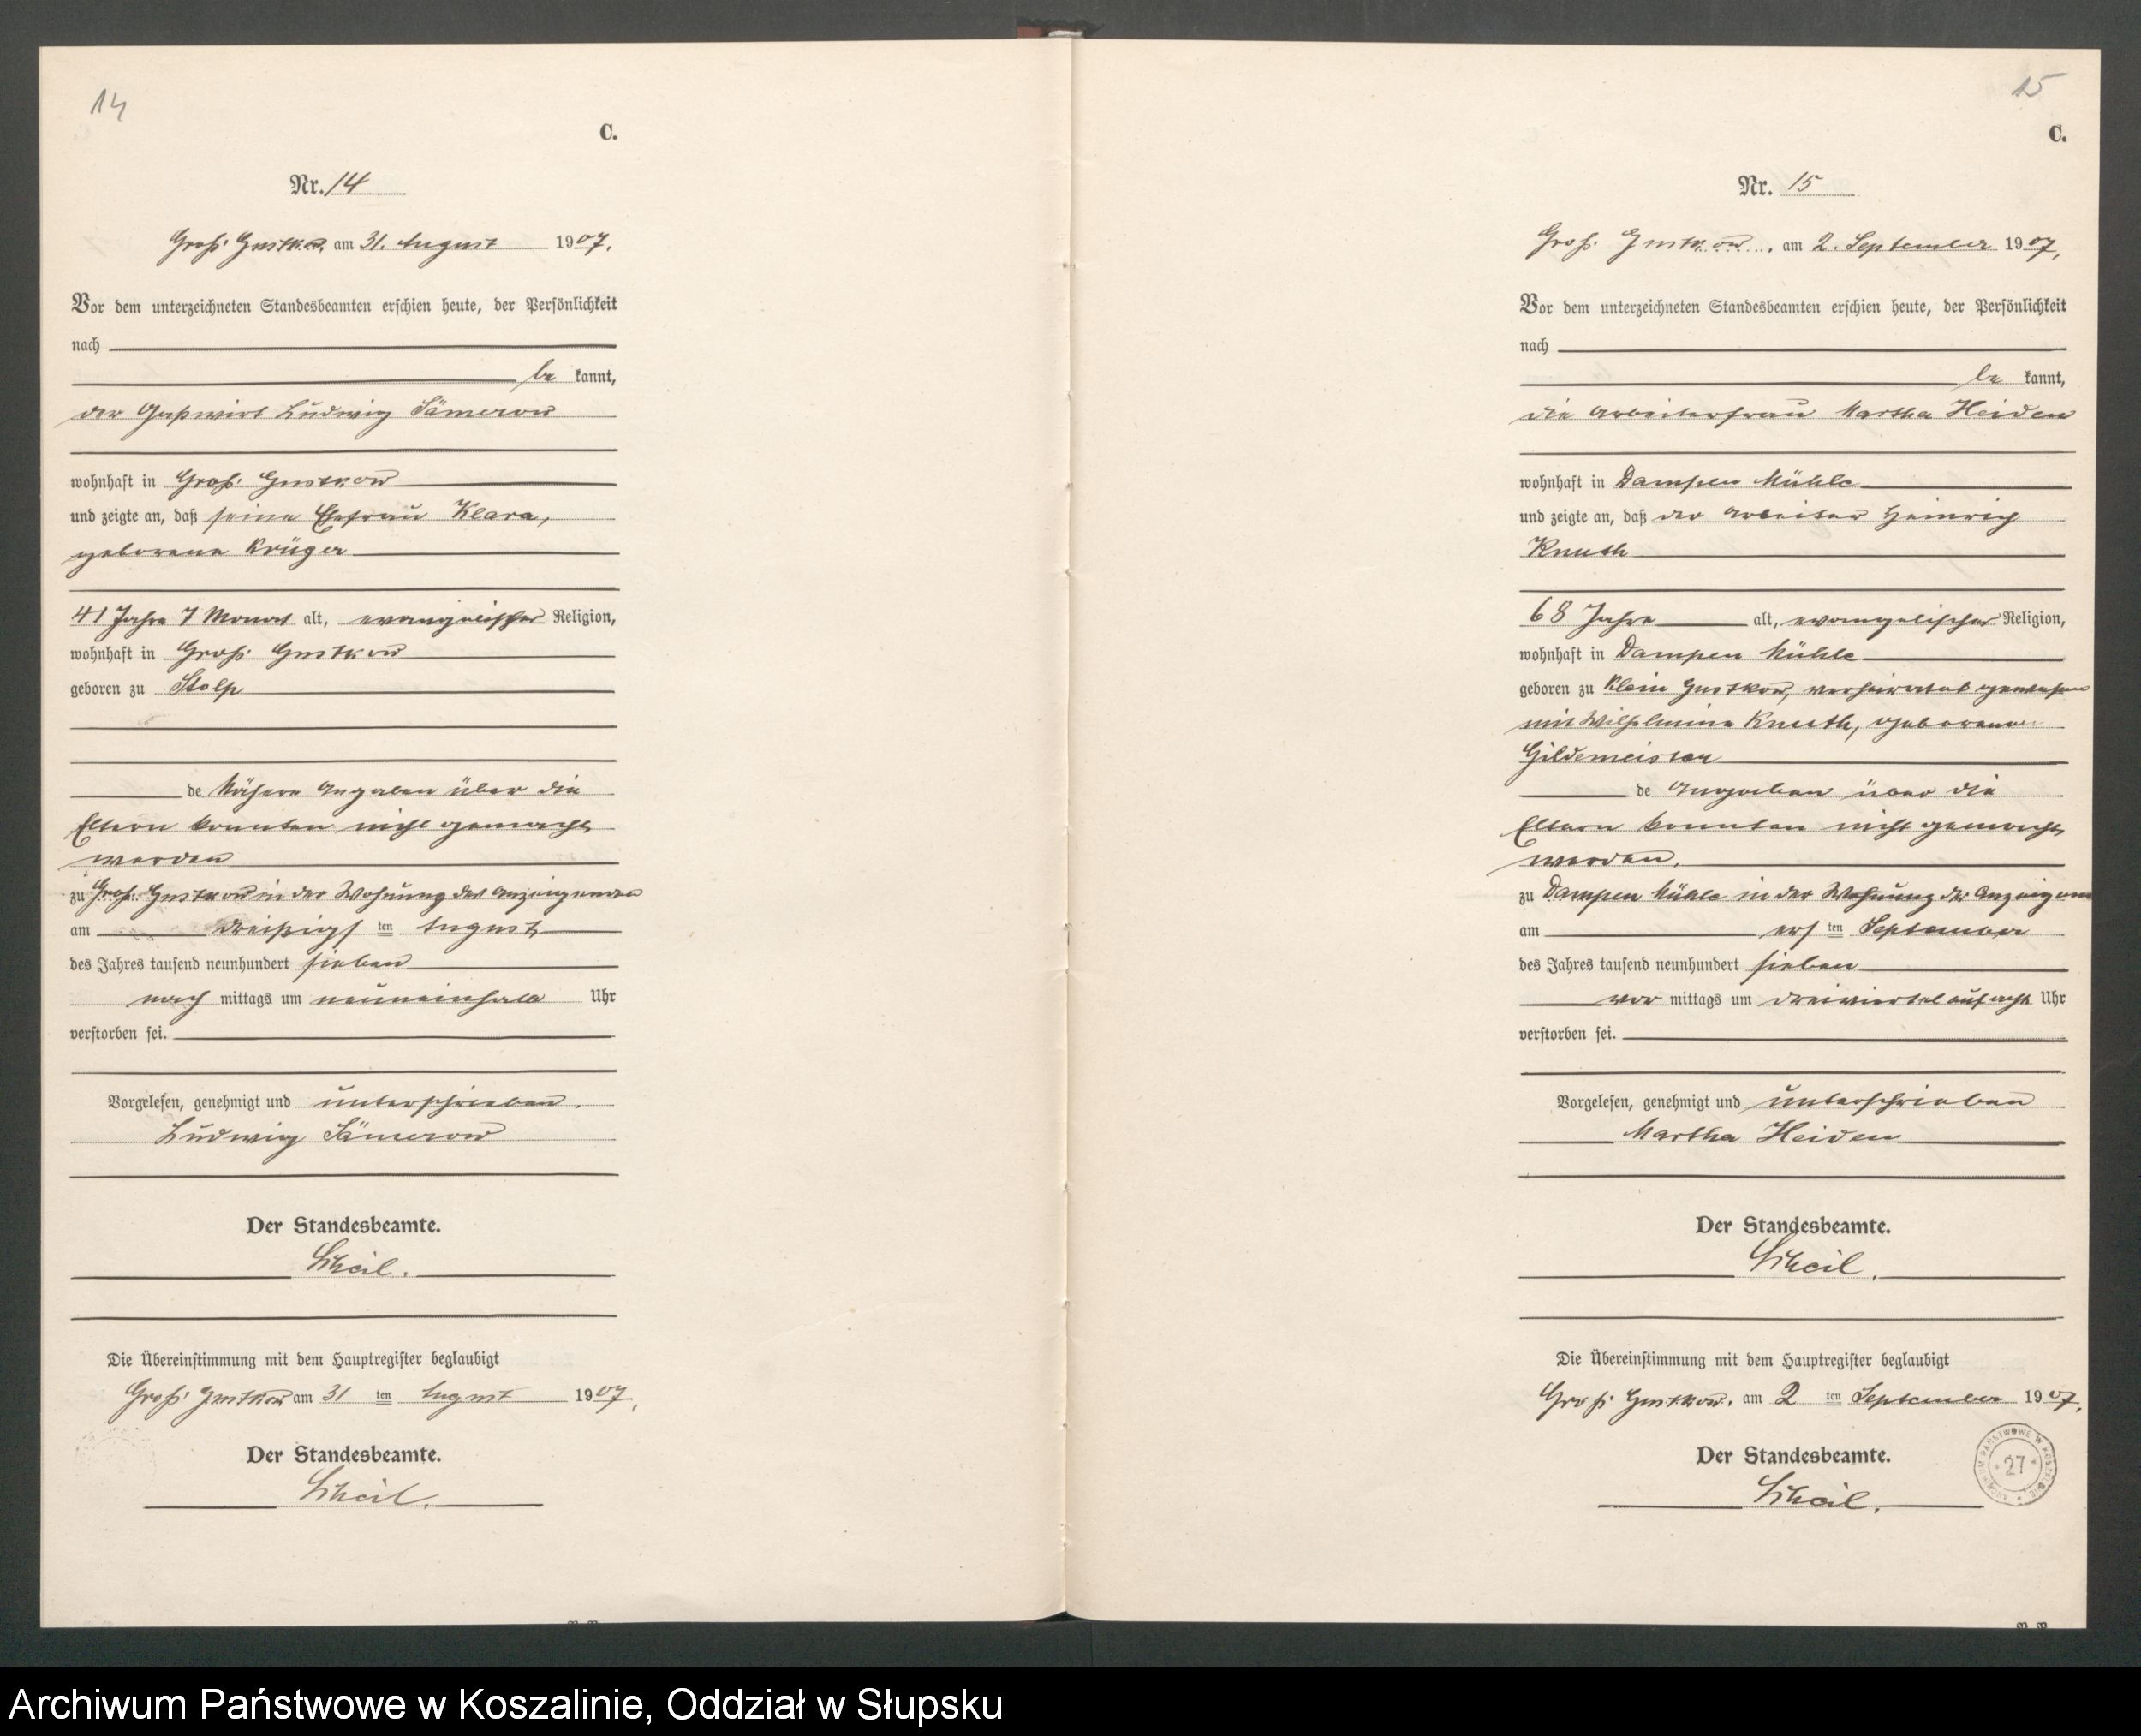 14
C.
Nr. 14
Groß Gustkow am 31. August 1907.
Vor dem unterzeichneten Standesbeamten erschien heute, der Persönlichkeit
nach
be kannt,
der Gastwirt Ludwig Jämerow
wohnhaft in Groß Gustkow
und zeigte an, daß seine Ehefrau Klara,
geborene Krüger
41 Jahre 7 Monat alt, evangelischer Religion,
wohnhaft in Groß Gustkow
geboren zu Stolp
de Nähere Angaben über die
Eltern konnten nicht gemacht
werden
zu Groß Gustkow in der Wohnung des Anzeigenden
am dreißigs ten August
des Jahres tausend neunhundert sieben
nach mittags um neuneinhalb Uhr
verstorben sei.
Vorgelesen, genehmigt und unterschrieben.
Ludwig Jämerow
Der Standesbeamte.
Die Übereinstimmung mit dem Hauptregister beglaubigt
Groß Gustkow am 31 ten August 1907.
Der Standesbeamte.
15
C.
Nr. 15
Groß Gustkow, am 2. September 1907.
Vor dem unterzeichneten Standesbeamten erschien heute, der Persönlichkeit
nach
be kannt,
die Arbeiterfrau Martha Heiden
wohnhaft in Dampen Mühle
und zeigte an, daß der Arbeiter Heinrich
Knuth
68 Jahre alt, evangelischer Religion,
wohnhaft in Dampen Mühle
geboren zu Klein Gustkow, verheiratet gewesen
mit Wilhelmine Knuth, geborenen
Gildemeister
de Angaben über die
Eltern konnten nicht gemacht
werden.
zu Dampen Mühle in der Wohnung der Anzeigen
am ers ten September
des Jahres tausend neunhundert sieben
vor mittags um dreiviertel auf acht Uhr
verstorben sei.
Vorgelesen, genehmigt und unterschrieben
Martha Heiden
Der Standesbeamte.
Die Übereinstimmung mit dem Hauptregister beglaubigt
Groß Gustkow, am 2 ten September 1907.
Der Standesbeamte.
ARCHIWUM PAŃSTWOWE W KOSZALINIE
27
Archiwum Państwowe w Koszalinie, Oddział w Słupsku